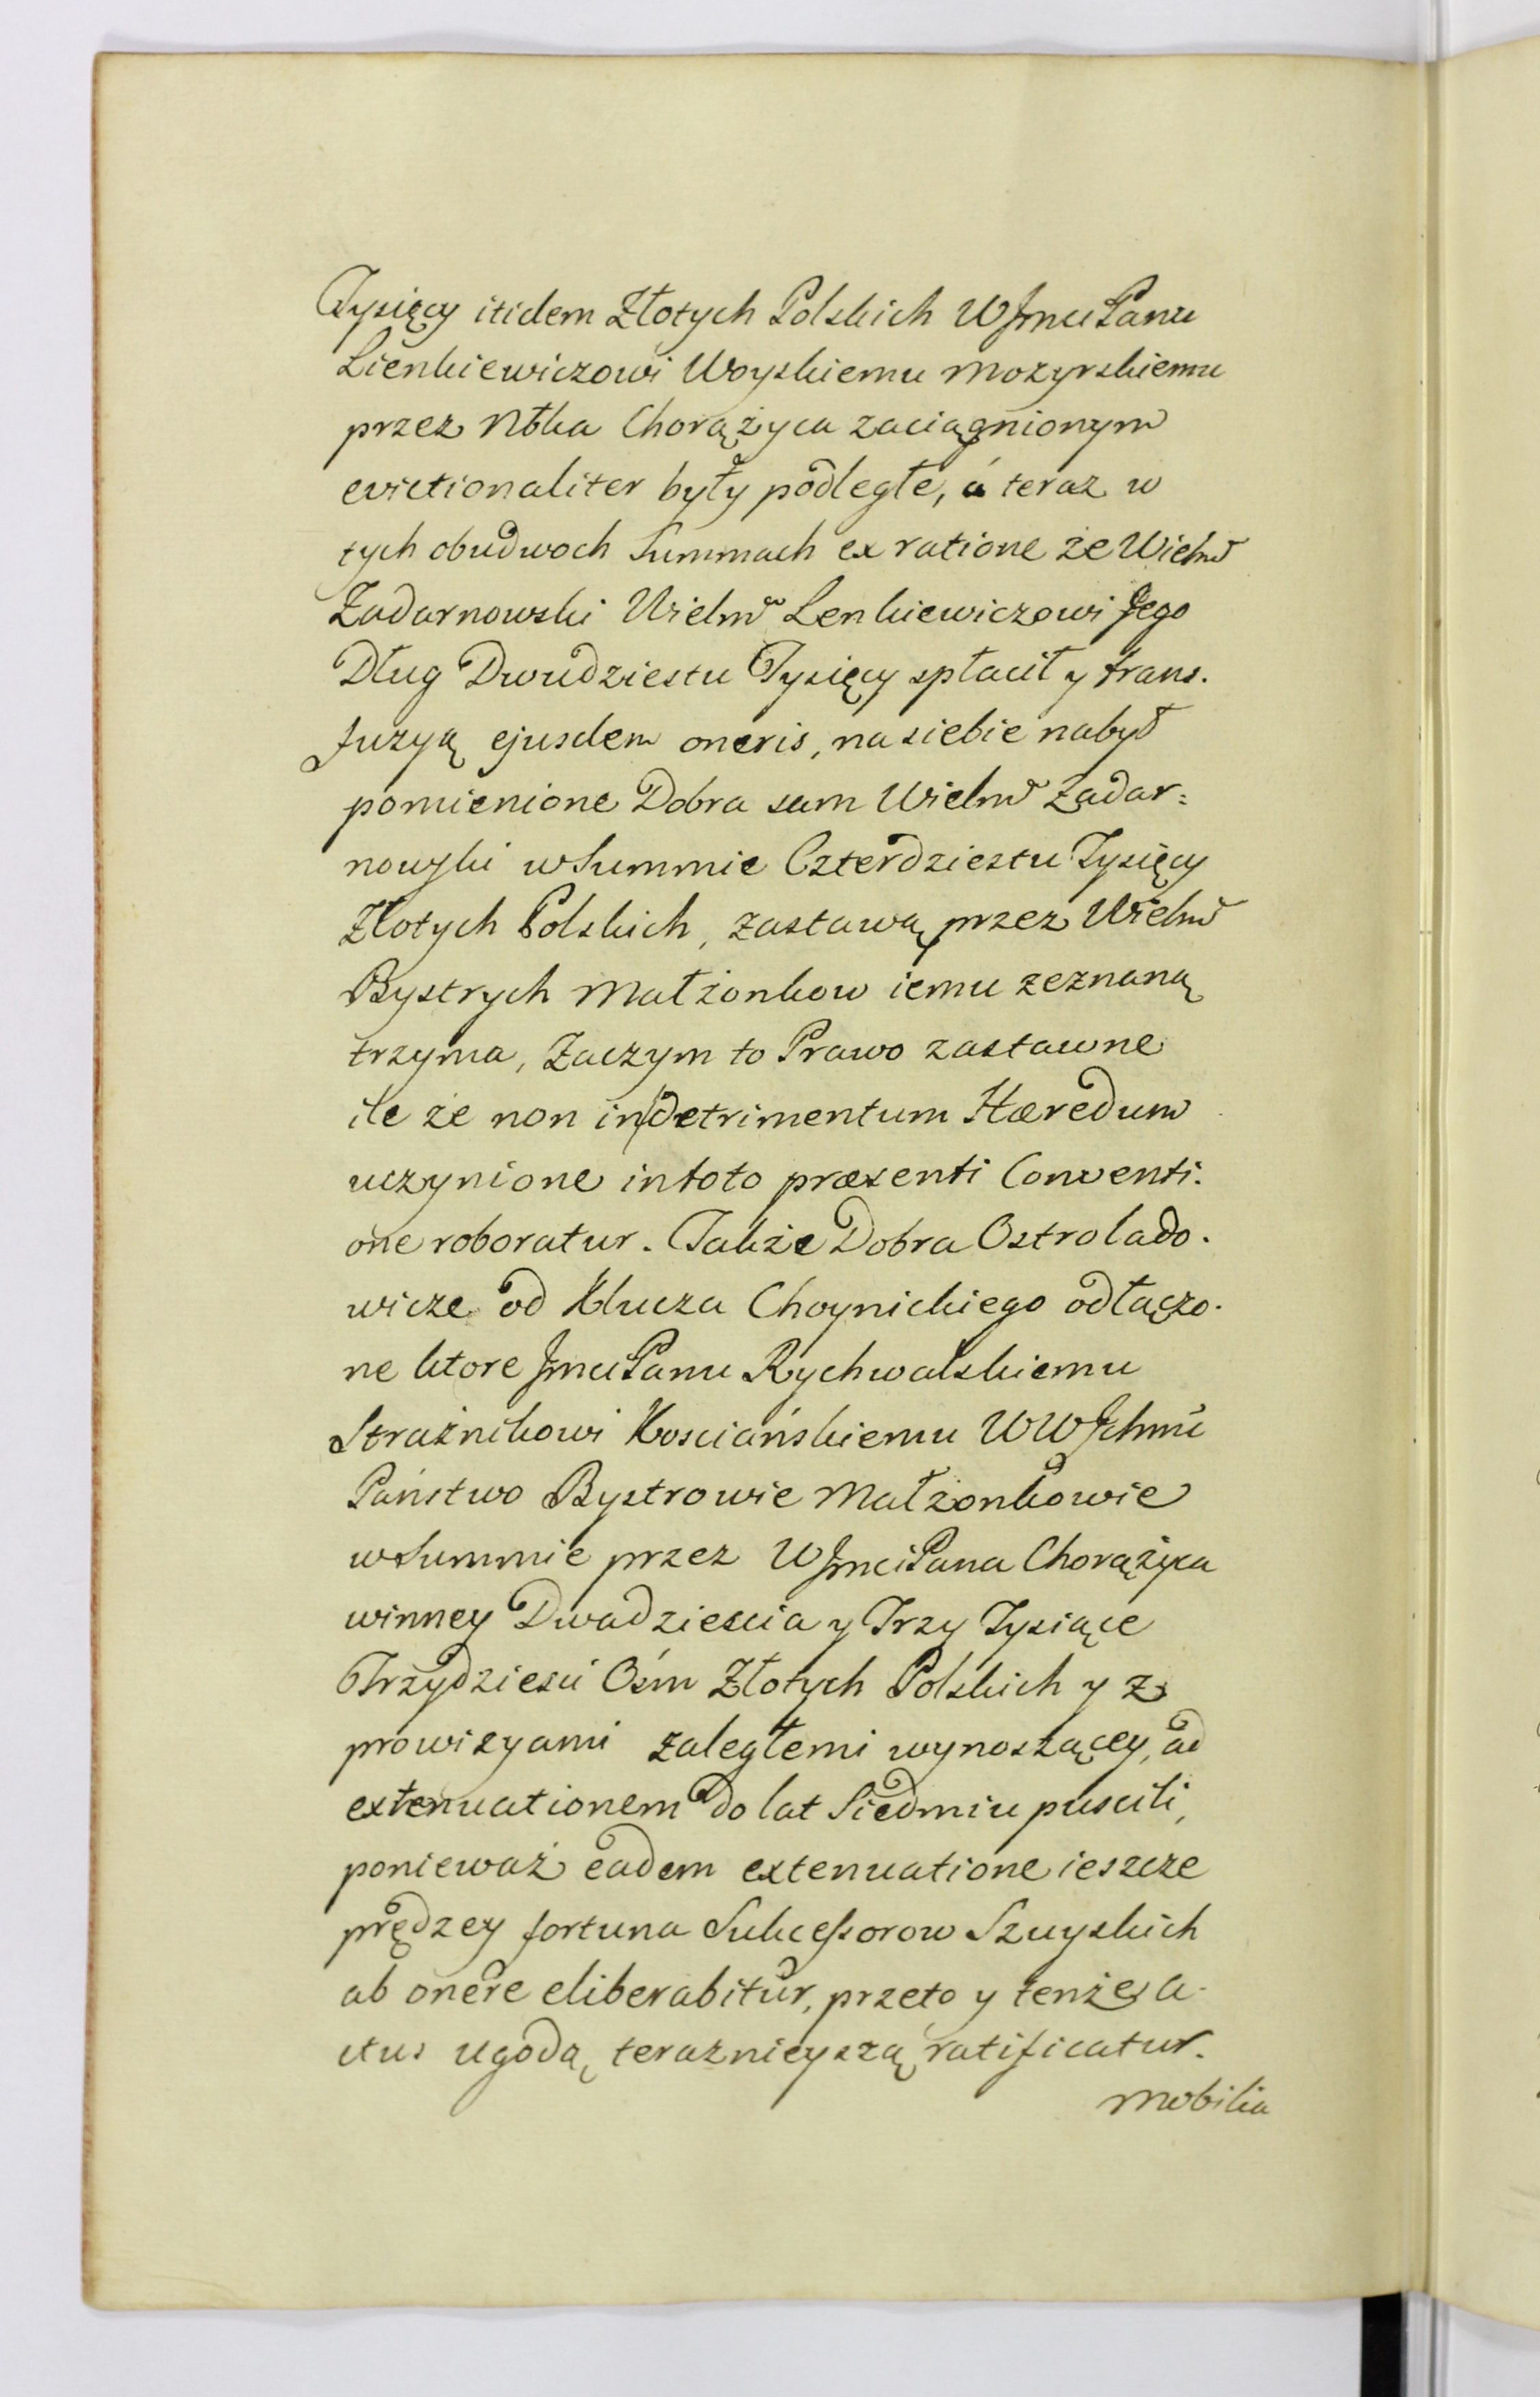 Tysięcy itidem Złotych Polskich WJmci Panu
Lienkiewiczowi Woyskiemu Mozyrskiemu
przez Chorążyca zaciągnionym
evictionaliter były podległe, á teraz w
tych obudwoch Summach ex ratione że Wielm
Zadarnowski Wielm Lenkiewiczowi Jego
Dług Dwudziestu Tysięcy spłacił y trans.
fuzyą ejusdem oneris, na siebie nabył
pomienione Dobra sam Wielm Zadar:
nowski w Summie Czterdziestu Tysięcy
Złotych Polskich, zastawą przez Wielm
Bystrych Małżonkow iemu zeznaną
trzyma, Zaczym to Prawo zastawne
ile że non in detrimentum Hæredum
uczynione in toto præsenti Conventi.
one roboratur. Także Dobra Ostrolado.
wicze od Klucza Choynickiego odłączo.
ne ktore Jmci Panu Rychwalskiemu
Strażnikowi Kosciańskiemu WWJchmć
Państwo Bystrowie Małżonkowie
w Summie przez WJmci Pana Chorążyca
winney Dwadziescia y Trzy Tysiące
Trzydziesci Ośm Złotych Polskich y z
prowizyami zaległemi wynoszącey, ad
extenuationem do lat Siedmiu puscili,
ponieważ eadem extenuatione ieszcze
prędzey fortuna Sukcessorow Szuyskich
ab onere eliberabitur, przeto y tenże a.
ctus ugodą teraznieyszą ratificatur.
Mobilia